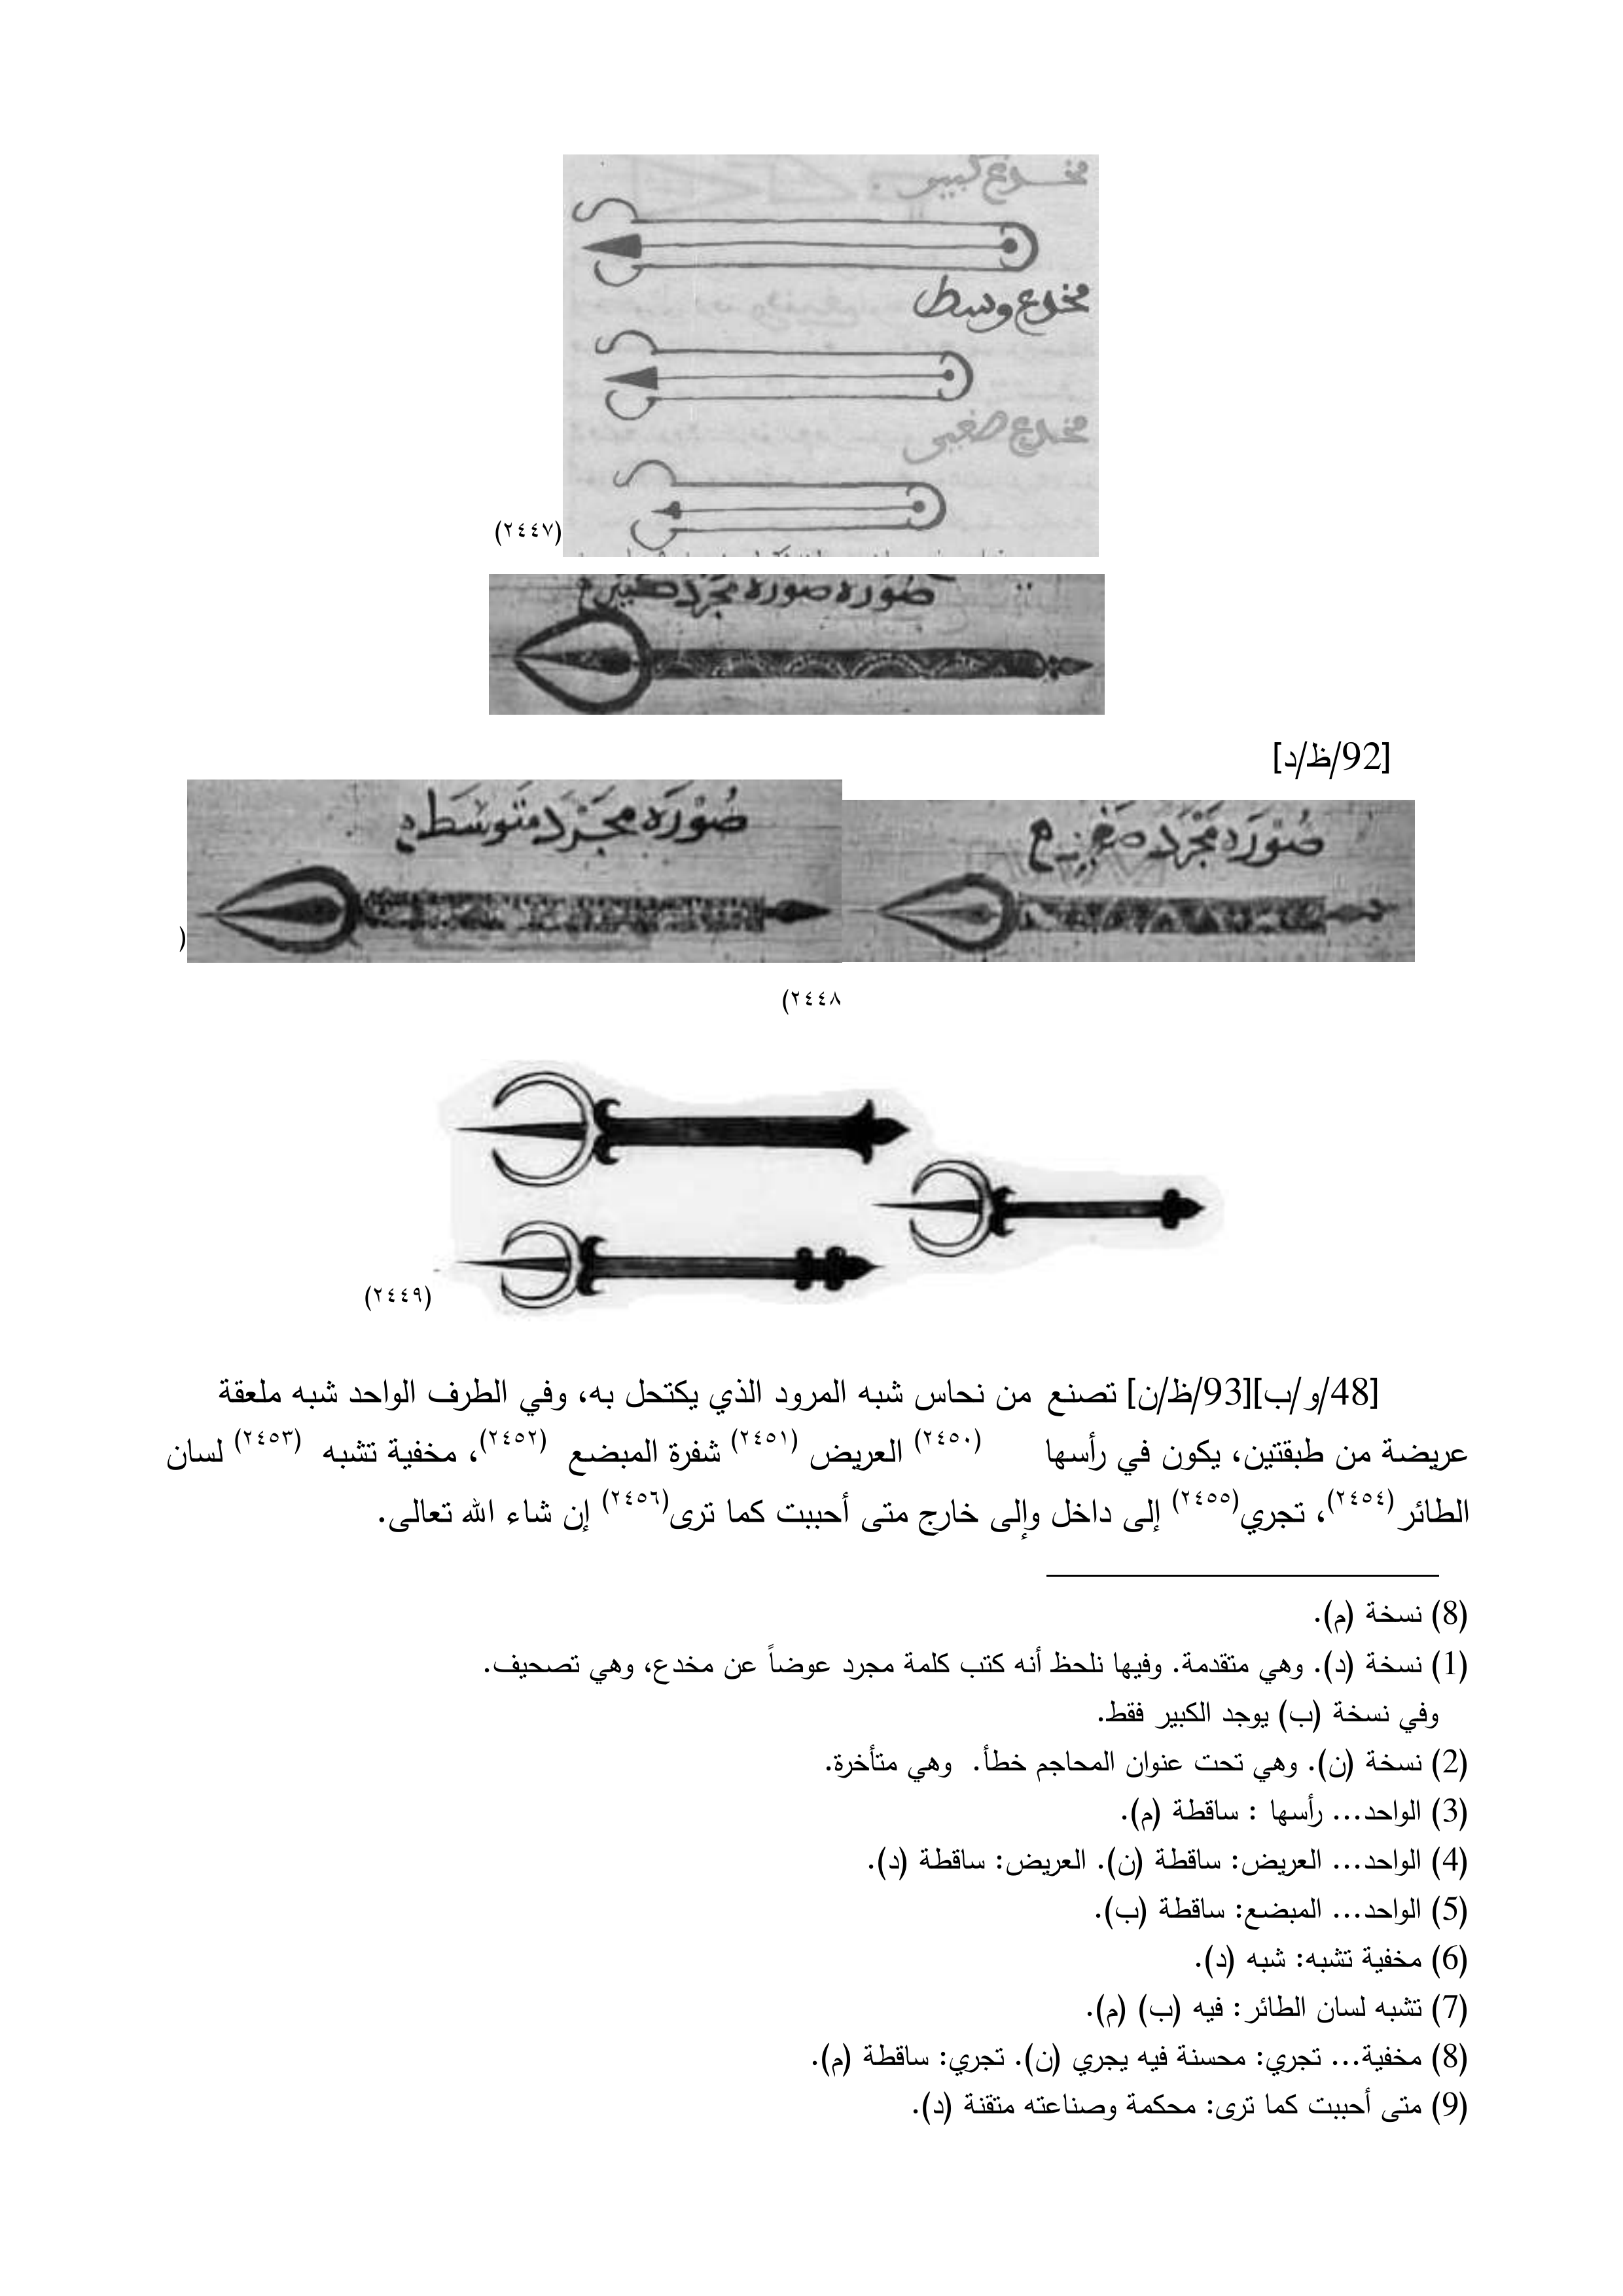 مخدع كبير
مخدع وسط
مخدع صغير
(٢٤٤٧)
صورة صورة مجرد كبير
[92/ظ/د]
صُورَة مجَرَّد صغير
صُورَة مجَرَّد متوسَط
(
٢٤٤٨)
(٢٤٤٩)
[48/و/ب][93/ظ/ن] تصنع من نحاس شبه المرود الذي يكتحل به، وفي الطرف الواحد شبه ملعقة
عريضة من طبقتين، يكون في رأسها (٢٤٥٠) العريض (٢٤٥١) شفرة المبضع (٢٤٥٢)، مخفية تشبه (٢٤٥٣) لسان
الطائر (٢٤٥٤)، تجري(٢٤٥٥) إلى داخل وإلى خارج متى أحببت كما ترى(٢٤٥٦) إن شاء الله تعالى.
(8) نسخة (م).
(1) نسخة (د). وهي متقدمة. وفيها نلحظ أنه كتب كلمة مجرد عوضاً عن مخدع، وهي تصحيف.
وفي نسخة (ب) يوجد الكبير فقط.
(2) نسخة (ن). وهي تحت عنوان المحاجم خطأ. وهي متأخرة.
(3) الواحد... رأسها : ساقطة (م).
(4) الواحد... العريض: ساقطة (ن). العريض: ساقطة (د).
(5) الواحد... المبضع: ساقطة (ب).
(6) مخفية تشبه: شبه (د).
(7) تشبه لسان الطائر: فيه (ب) (م).
(8) مخفية... تجري: محسنة فيه يجري (ن). تجري: ساقطة (م).
(9) متى أحببت كما ترى: محكمة وصناعته متقنة (د).